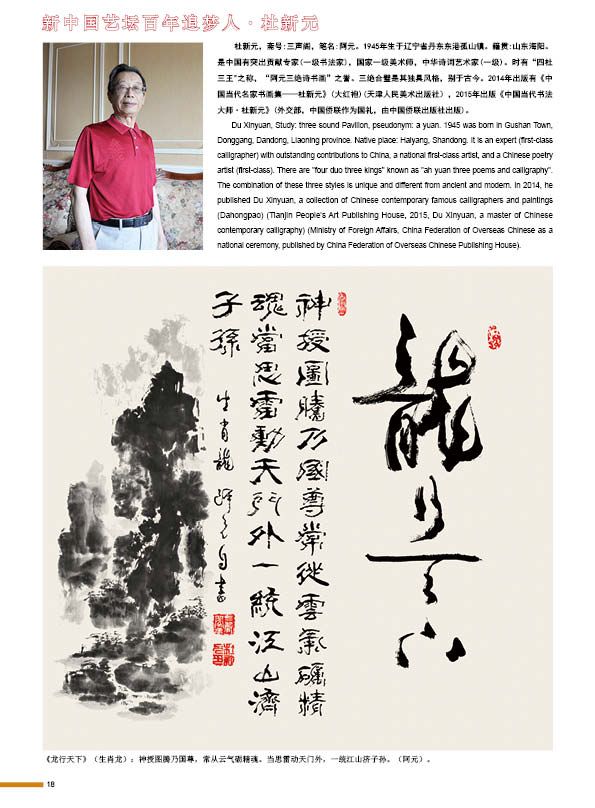 新中国艺坛百年追梦人·杜新元
杜新元，斋号：三声阁，笔名：阿元。1945年生于辽宁省丹东东港孤山镇。籍贯：山东海阳。
是中国有突出贡献专家（一级书法家），国家一级美术师，中华诗词艺术家（一级）。时有“四杜
三王”之称，“阿元三绝诗书画”之誉。三绝合璧是其独具风格，别于古今。2014年出版有《中
国当代名家书画集——杜新元》（大红袍）（天津人民美术出版社），2015年出版《中国当代书法
大师·杜新元》（外交部，中国侨联作为国礼，由中国侨联出版社出版）。
Du Xinyuan, Study: three sound Pavilion, pseudonym: a yuan. 1945 was born in Gushan Town,
Donggang, Dandong, Liaoning province. Native place: Haiyang, Shandong. It is an expert (first-class
calligrapher) with outstanding contributions to China, a national first-class artist, and a Chinese poetry
artist (first-class). There are "four duo three kings" known as "ah yuan three poems and calligraphy".
The combination of these three styles is unique and different from ancient and modern. In 2014, he
published Du Xinyuan, a collection of Chinese contemporary famous calligraphers and paintings
(Dahongpao) (Tianjin People's Art Publishing House, 2015, Du Xinyuan, a master of Chinese
contemporary calligraphy) (Ministry of Foreign Affairs, China Federation of Overseas Chinese as a
national ceremony, published by China Federation of Overseas Chinese Publishing House).
龍行天下
神授圖騰乃國尊常從雲氣礪精
魂當思雷動天门外一統江山濟
子孫
生肖龍
《龙行天下》（生肖龙）：神授图腾乃国尊，常从云气砺精魂。当思雷动天门外，一统江山济子孙。（阿元）。
18